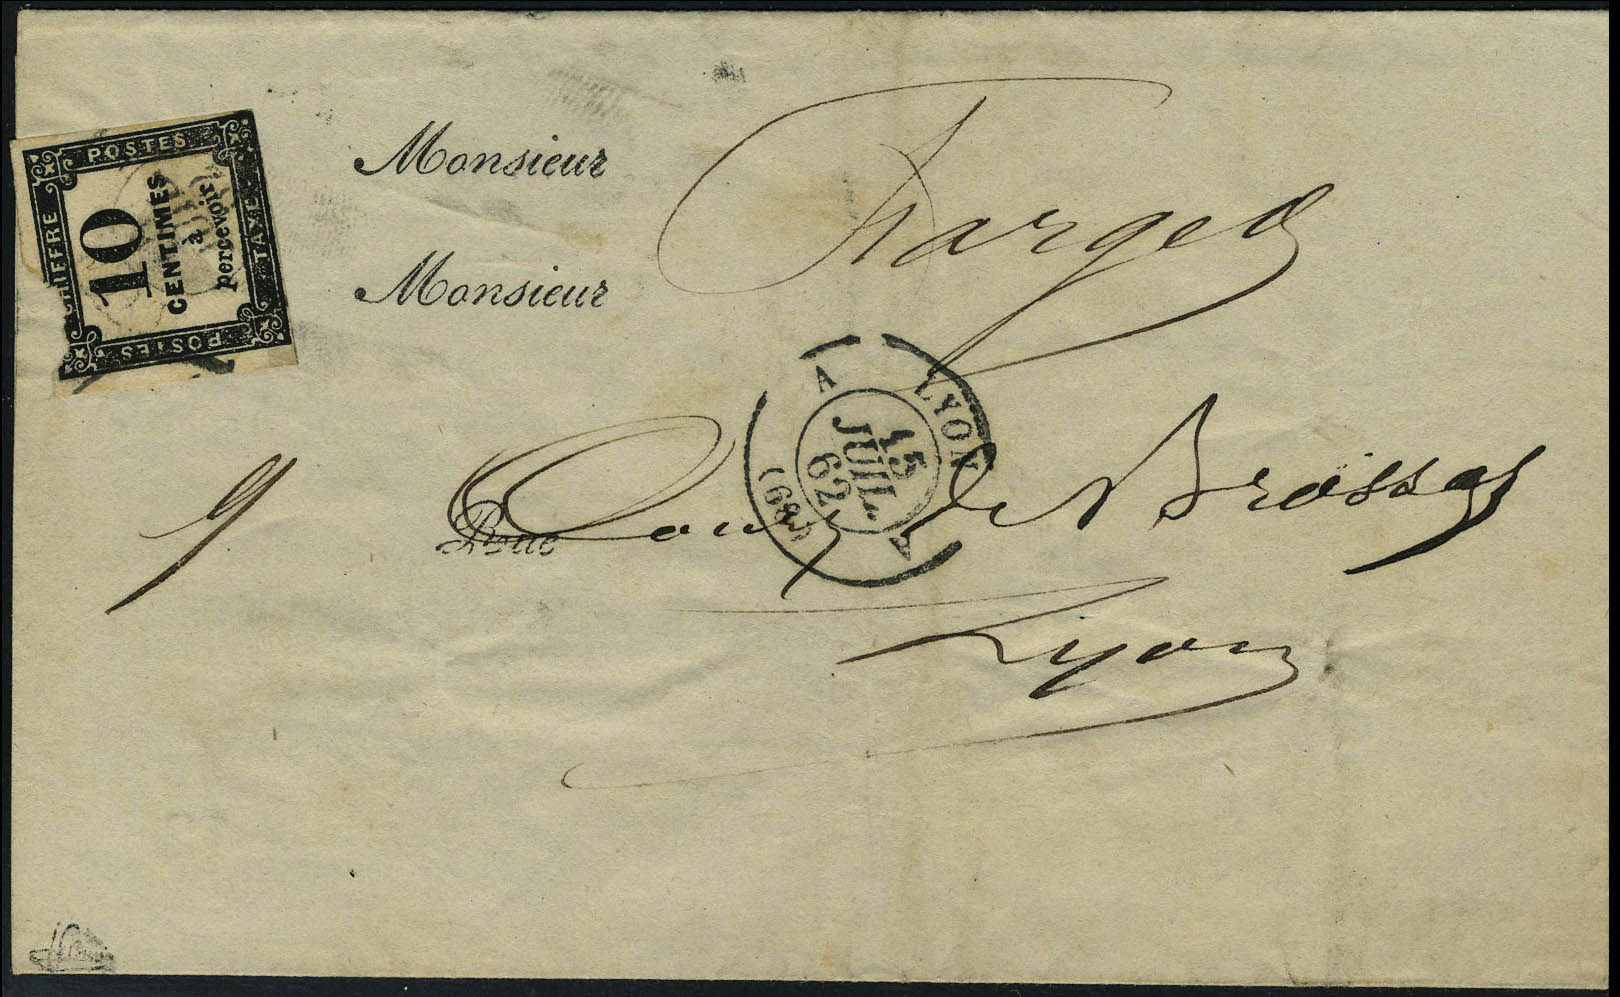 CHIFFRE
POSTES
TAXE
POSTES
10
CENTIMES
à
percevoir
Monsieur
Monsieur
Farges
A LYON (68)
15
JUIL.
62
9 Rue Cours de Brosses
Lyon